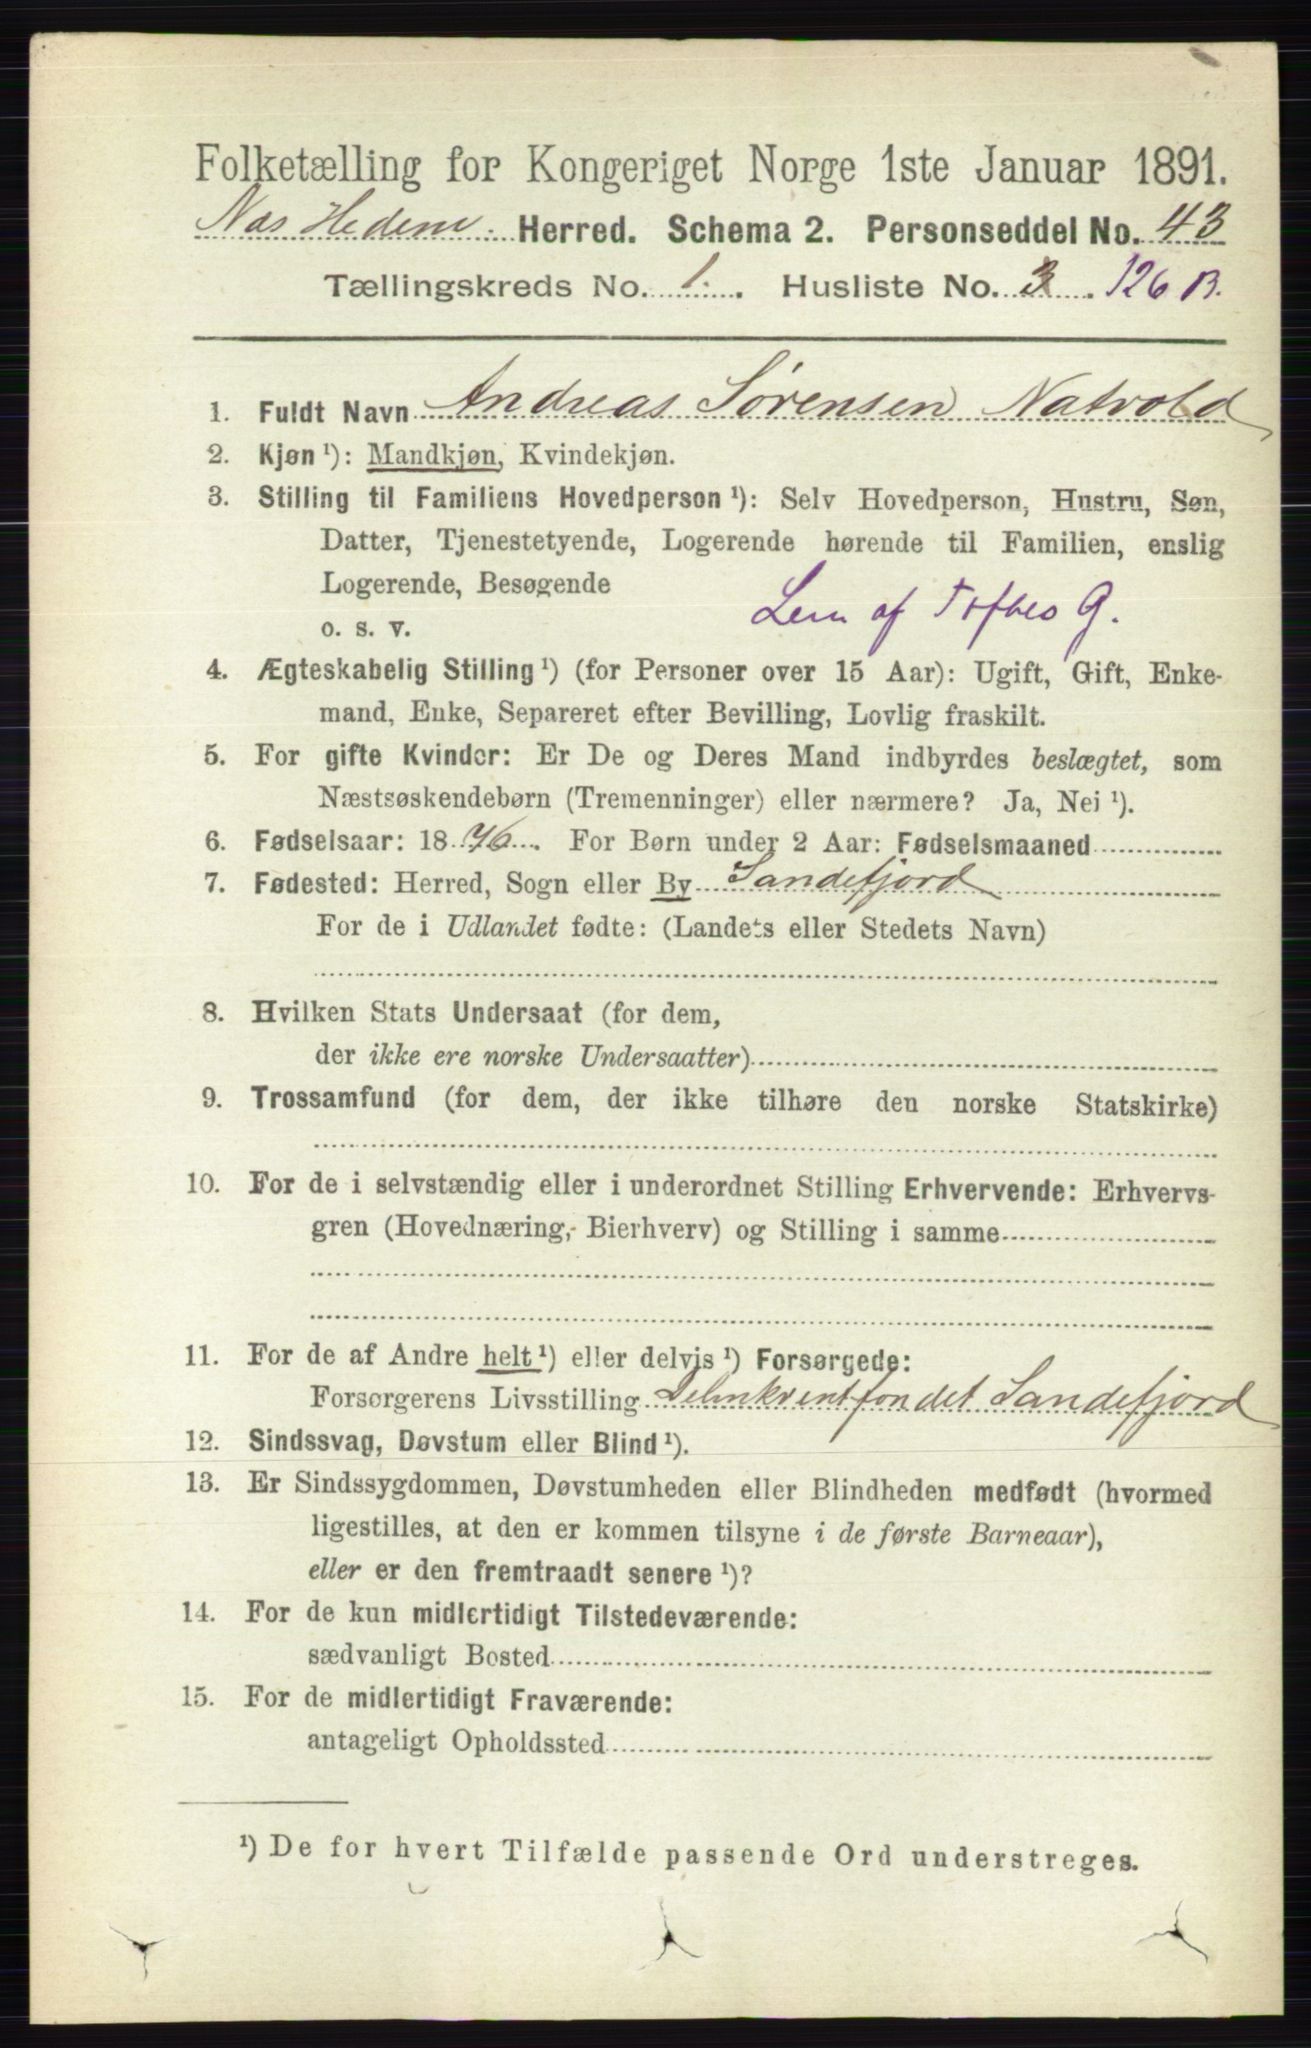 Folketælling for Kongeriget Norge 1ste Januar 1891.
Nas Hedem. Herred. Schema 2. Personseddel No. 43
Tællingskreds No. 1. Husliste No. 3. 126 B.
1. Fuldt Navn Andreas Sørensen Natvold
2. Kjøn ¹): Mandkjøn, Kvindekjøn.
3. Stilling til Familiens Hovedperson ¹): Selv Hovedperson, Hustru, Søn,
Datter, Tjenestetyende, Logerende hørende til Familien, enslig
Logerende, Besøgende
o. s. v. Lem af Toftes G.
4. Ægteskabelig Stilling ¹) (for Personer over 15 Aar): Ugift, Gift, Enke-
mand, Enke, Separeret efter Bevilling, Lovlig fraskilt.
5. For gifte Kvinder: Er De og Deres Mand indbyrdes beslægtet, som
Næstsøskendebørn (Tremenninger) eller nærmere? Ja, Nei ¹).
6. Fødselsaar: 1876. For Børn under 2 Aar: Fødselsmaaned
7. Fødested: Herred, Sogn eller By Sandefjord
For de i Udlandet fødte: (Landets eller Stedets Navn)
8. Hvilken Stats Undersaat (for dem,
der ikke ere norske Undersaatter)
9. Trossamfund (for dem, der ikke tilhøre den norske Statskirke)
10. For de i selvstændig eller i underordnet Stilling Erhvervende: Erhvervs-
gren (Hovednæring, Bierhverv) og Stilling i samme
11. For de af Andre helt ¹) eller delvis ¹) Forsørgede:
Forsørgerens Livsstilling Delinkventfondet Sandefjord
12. Sindssvag, Døvstum eller Blind ¹).
13. Er Sindssygdommen, Døvstumheden eller Blindheden medfødt (hvormed
ligestilles, at den er kommen tilsyne i de første Barneaar),
eller er den fremtraadt senere ¹)?
14. For de kun midlertidigt Tilstedeværende:
sædvanligt Bosted
15. For de midlertidigt Fraværende:
antageligt Opholdssted
¹) De for hvert Tilfælde passende Ord understreges.